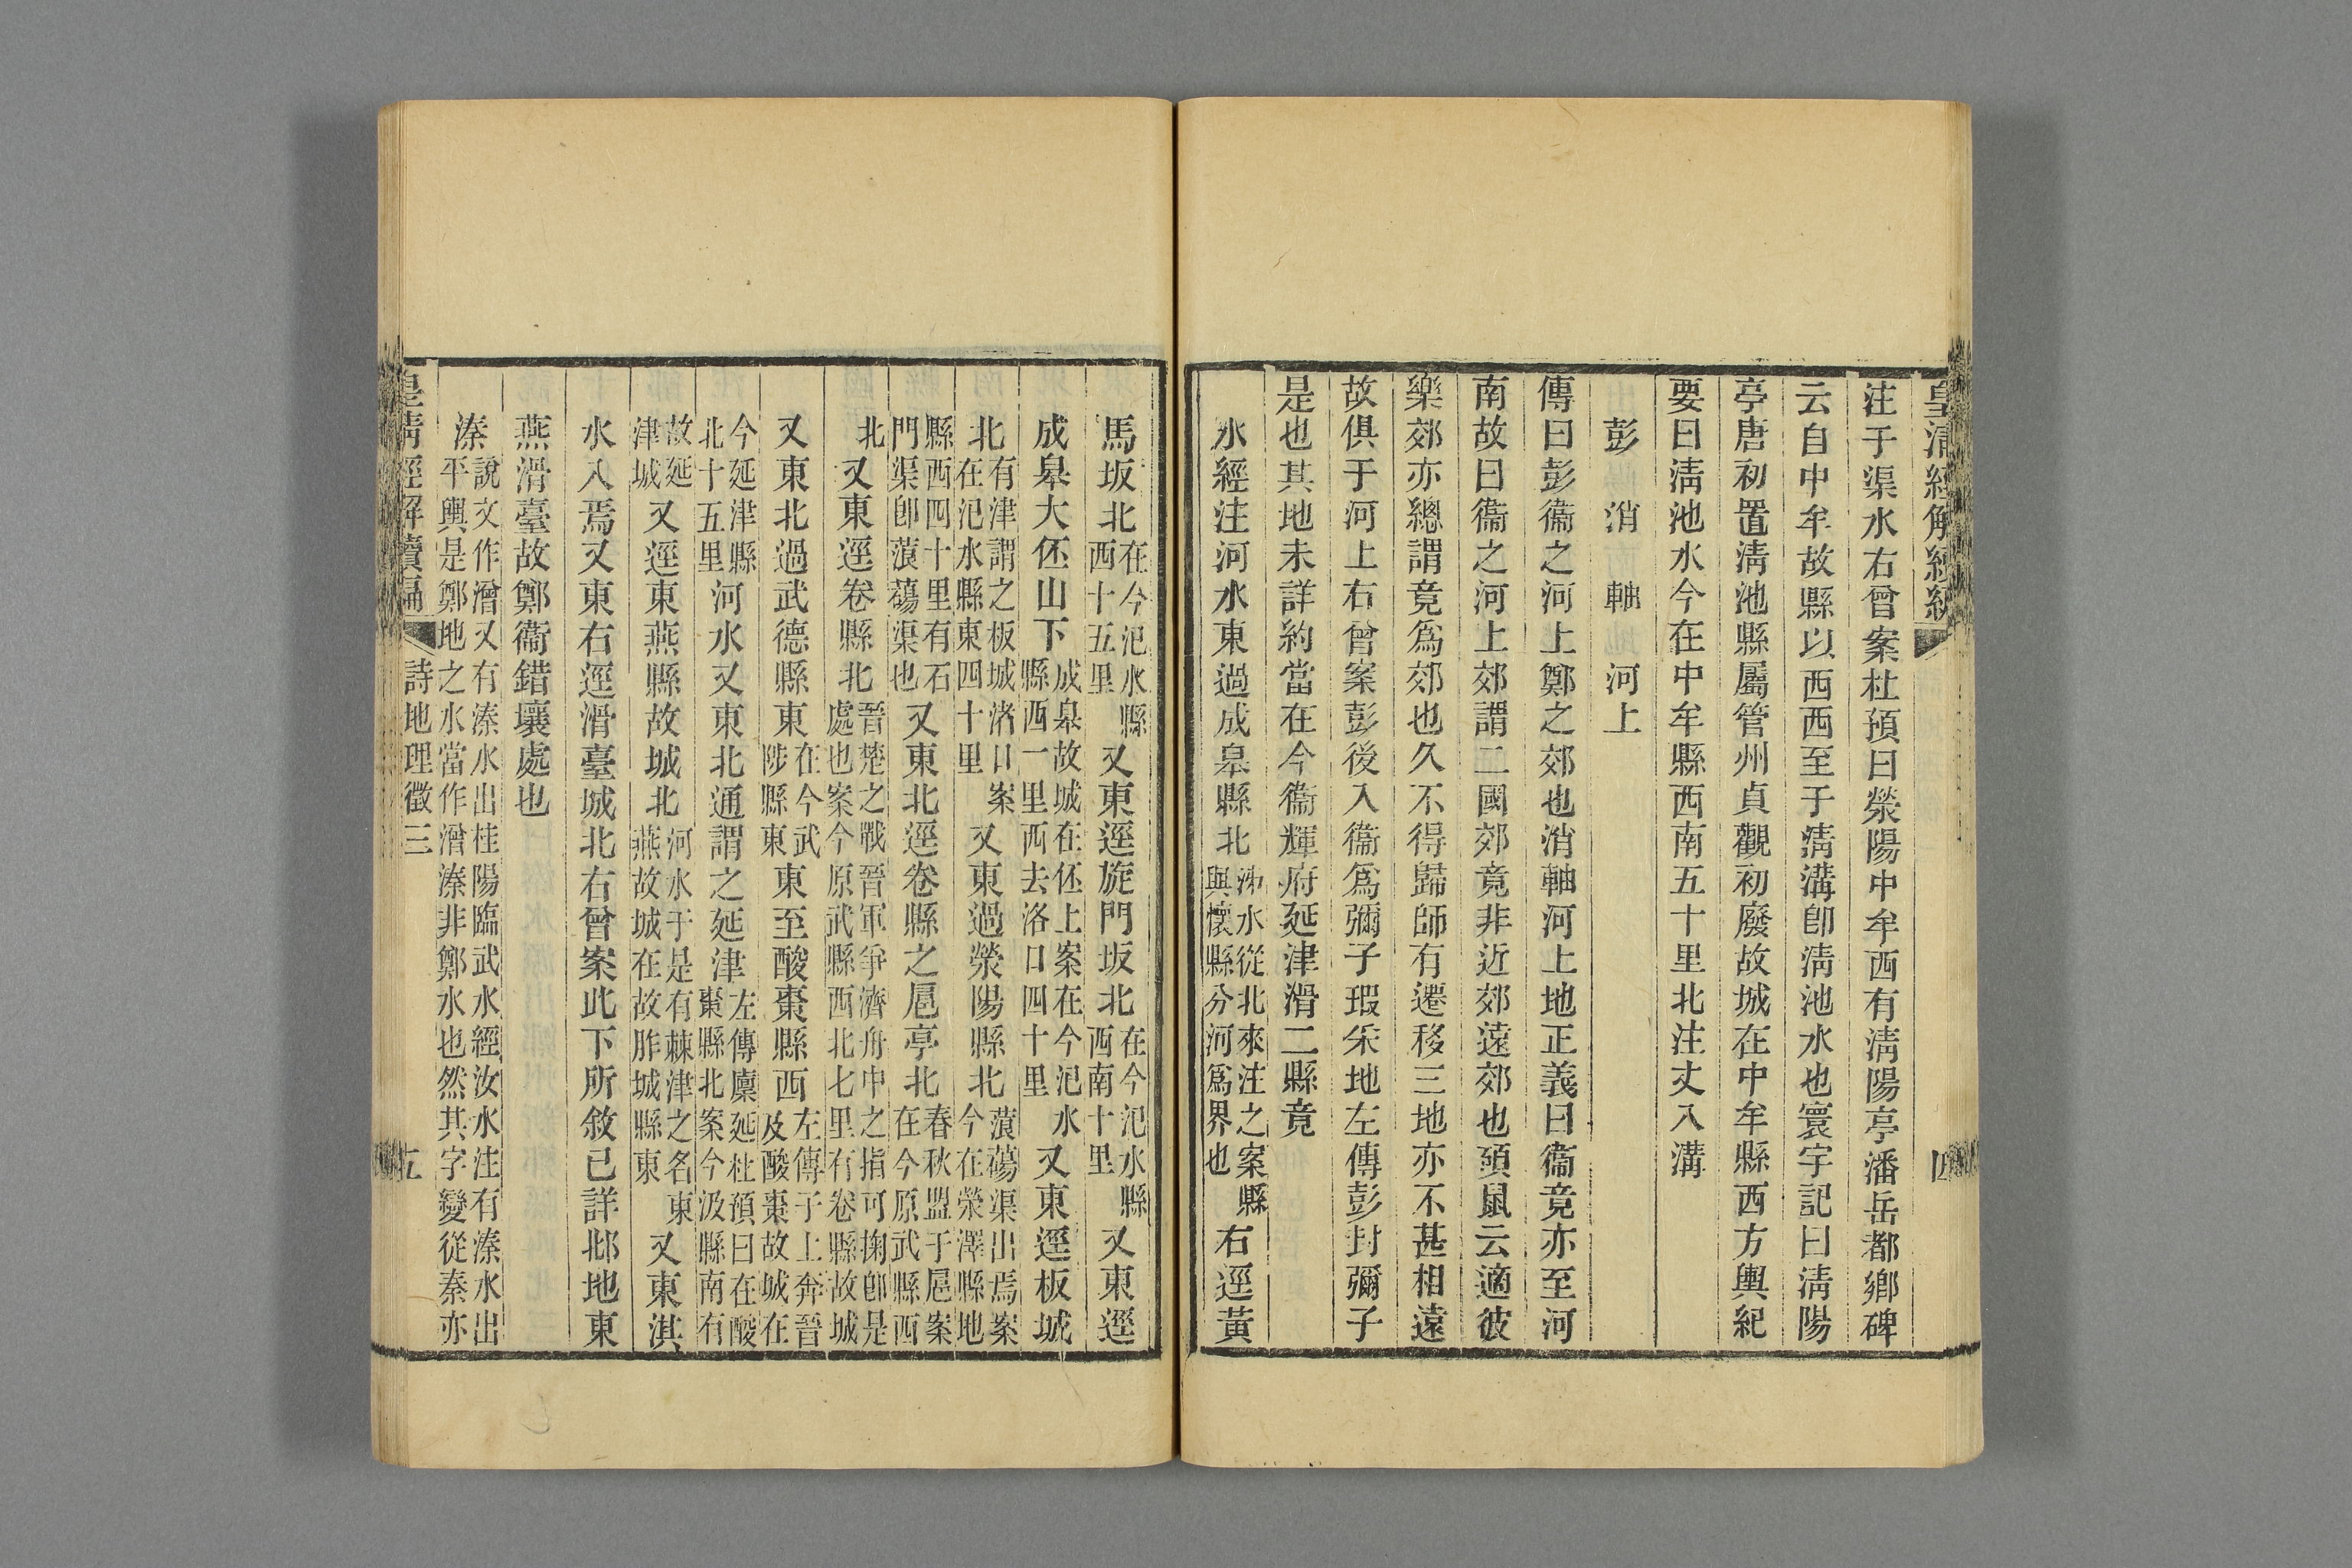 皇清經解續編
四
注于渠水右曾案杜預曰滎陽中牟西有淸陽亭潘岳都鄉碑
云自中牟故縣以西西至于淸溝卽淸池水也寰宇記曰淸陽
亭唐初置淸池縣屬管州貞觀初廢故城在中牟縣西方輿紀
要曰淸池水今在中牟縣西南五十里北注丈入溝
彭　消　軸　河上
傳曰彭衞之河上鄭之郊也消軸河上地正義曰衞竟亦至河
南故曰衞之河上郊謂二國郊竟非近郊遠郊也碩鼠云適彼
樂郊亦總謂竟爲郊也久不得歸師有遷移三地亦不甚相遠
故俱于河上右曾案彭後入衞爲彌子瑕采地左傳彭封彌子
是也其地未詳約當在今衞輝府延津滑二縣竟
水經注河水東過成皋縣北
沸水從北來注之案縣
與懷縣分河爲界也
右逕黃
馬坂北
在今汜水縣
西十五里
又東逕旋門坂北
在今汜水縣
西南十里
又東逕
成皋大伾山下
成皋故城在伾上案在今汜水
縣西一里西去洛口四十里
又東逕板城
北
有津謂之板城渚口案
在汜水縣東四十里
又東過滎陽縣北
蒗𦿆渠出焉案
今在滎澤縣地
縣西四十里有石
門渠卽蒗蕩渠也
又東北逕卷縣之扈亭北
春秋盟于扈案
在今原武縣西
北
又東逕卷縣北
晉楚之戰晉軍爭濟舟中之指可掬卽是
處也案今原武縣西北七里有卷縣故城
又東北過武德縣東
在今武
陟縣東
東至酸棗縣西
左傳子上奔晉
及酸棗故城在
今延津縣
北十五里
河水又東北通謂之延津
左傳廩延杜預曰在酸
棗縣北案今汲縣南有
故延
津城
又逕東燕縣故城北
河水于是有棘津之名東
燕故城在故胙城縣東
又東淇
水入焉又東右逕滑臺城北右曾案此下所敘已詳邶地東
燕滑臺故鄭衞錯壤處也
溱
說文作潧又有溱水出桂陽臨武水經汝水注有溱水出
平輿是鄭地之水當作潧溱非鄭水也然其字變從秦亦
皇淸經解續編
詩地理徵三
五